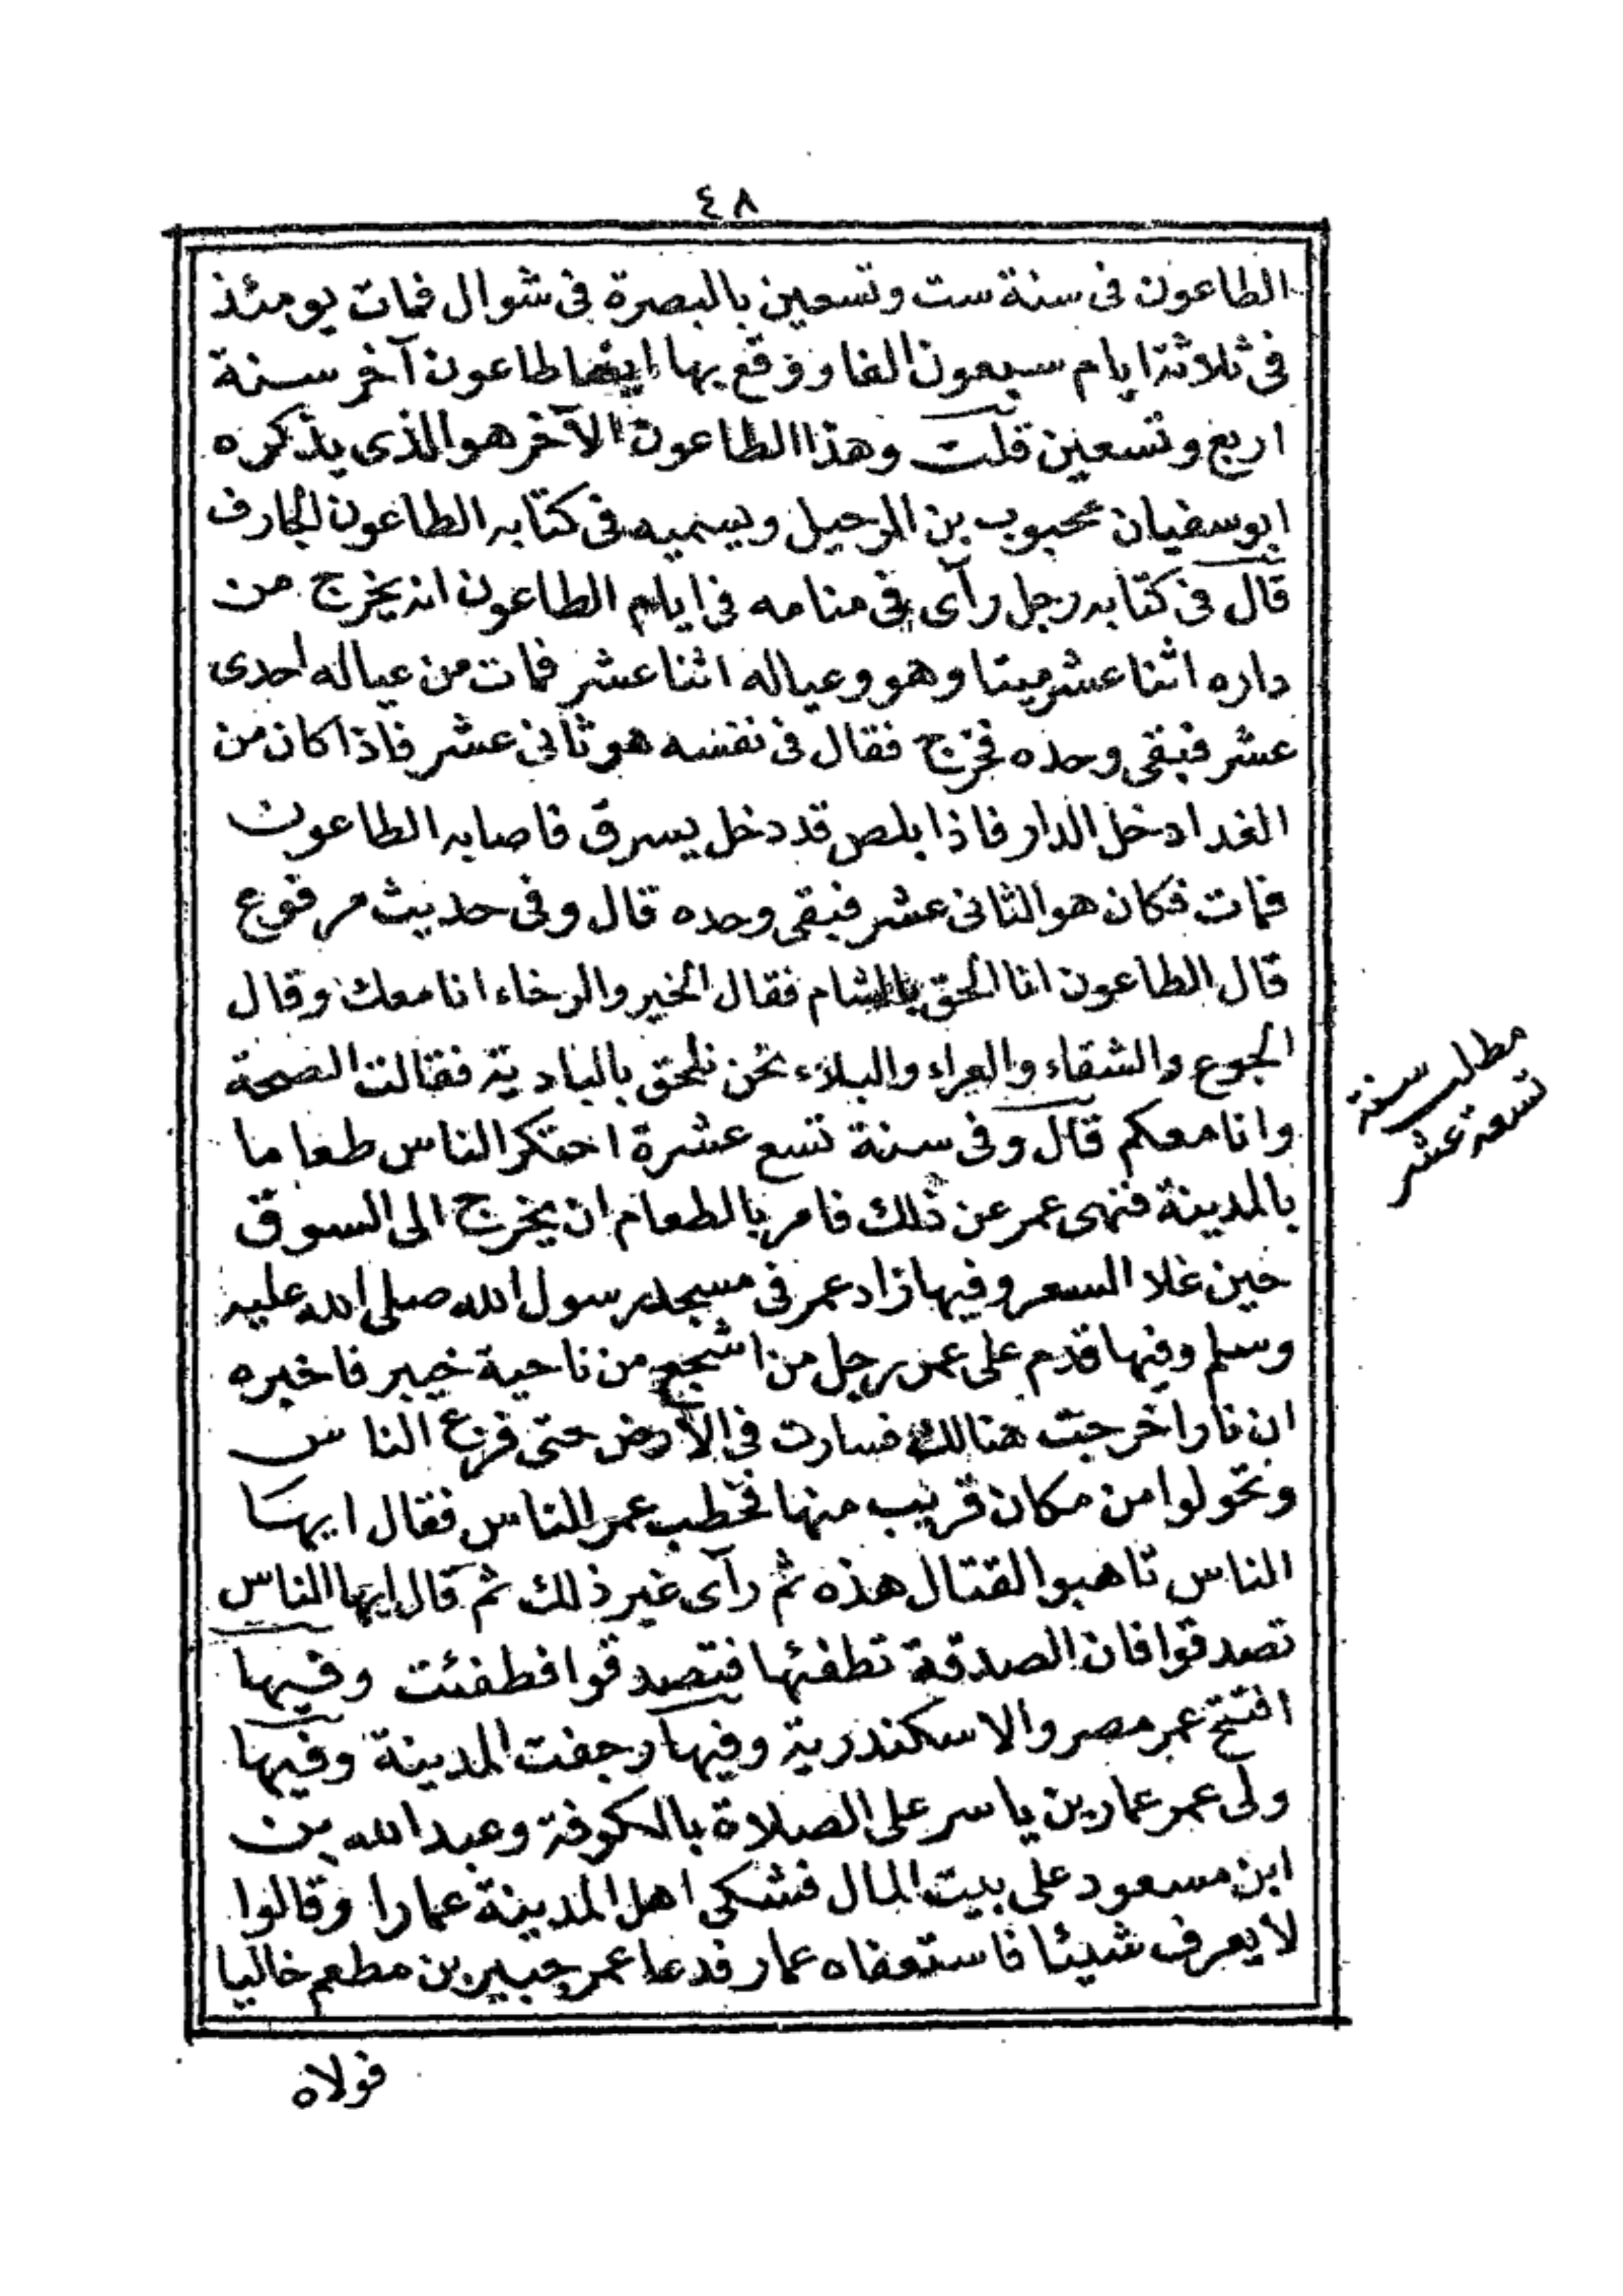 ٤٨
الطاعون فى سنة ست وتسعين بالبصرة فى شوال فمات يومئذ
فى ثلاثة ايام سبعون الفا ووقع بها ايضا طاعون آخر سنة
اربع وتسعين قلت وهذا الطاعون الآخر هو الذى يذكره
ابو سفيان محبوب بن الرحيل ويسميه فى كتابه الطاعون الجارف
قال فى كتابه رجل رآى فى منامه فى ايام الطاعون انه يخرج من
داره اثنا عشر ميتا وهو وعياله اثنا عشر فمات من عياله احدى
عشر فبقى وحده فخرج فقال فى نفسه هو ثانى عشر فاذا كان من
الغد ادخل الدار فاذا بلص قد دخل يسرق فاصابه الطاعون
فمات فكان هو الثانى عشر فبقى وحده قال وفى حديث مرفوع
قال الطاعون انا الحق بالشام فقال الخير والرخاء انا معك وقال
الجوع والشقاء والعراء والبلاء نحن نلحق بالبادية فقالت الصحة
وانا معكم قال وفى سنة تسع عشرة احتكر الناس طعاما
بالمدينة فنهى عمر عن ذلك فامر بالطعام ان يخرج الى السوق
حين غلا السعر وفيها زاد عمر فى مسجد رسول الله صلى الله عليه
وسلم وفيها قدم على عمر رجل من اشجع من ناحية خيبر فاخبره
ان نارا خرجت هنالك فسارت فى الأرض حتى فزع الناس
وتحولوا من مكان قريب منها فخطب عمر الناس فقال ايها
الناس تاهبوا لقتال هذه ثم رآى غير ذلك ثم قال ايها الناس
تصدقوا فان الصدقة تطفئها فتصدقوا فطفئت وفيها
افتتح عمر مصر والاسكندرية وفيها رجفت المدينة وفيها
ولى عمر عمار بن ياسر على الصلاة بالكوفة وعبد الله بن
ابن مسعود على بيت المال فشكى اهل المدينة عمارا وقالوا
لا يعرف شيئا فاستعفاه عمار فدعا عمر جبير بن مطعم خاليا
فولاه
مطلب سنة
تسعة عشر